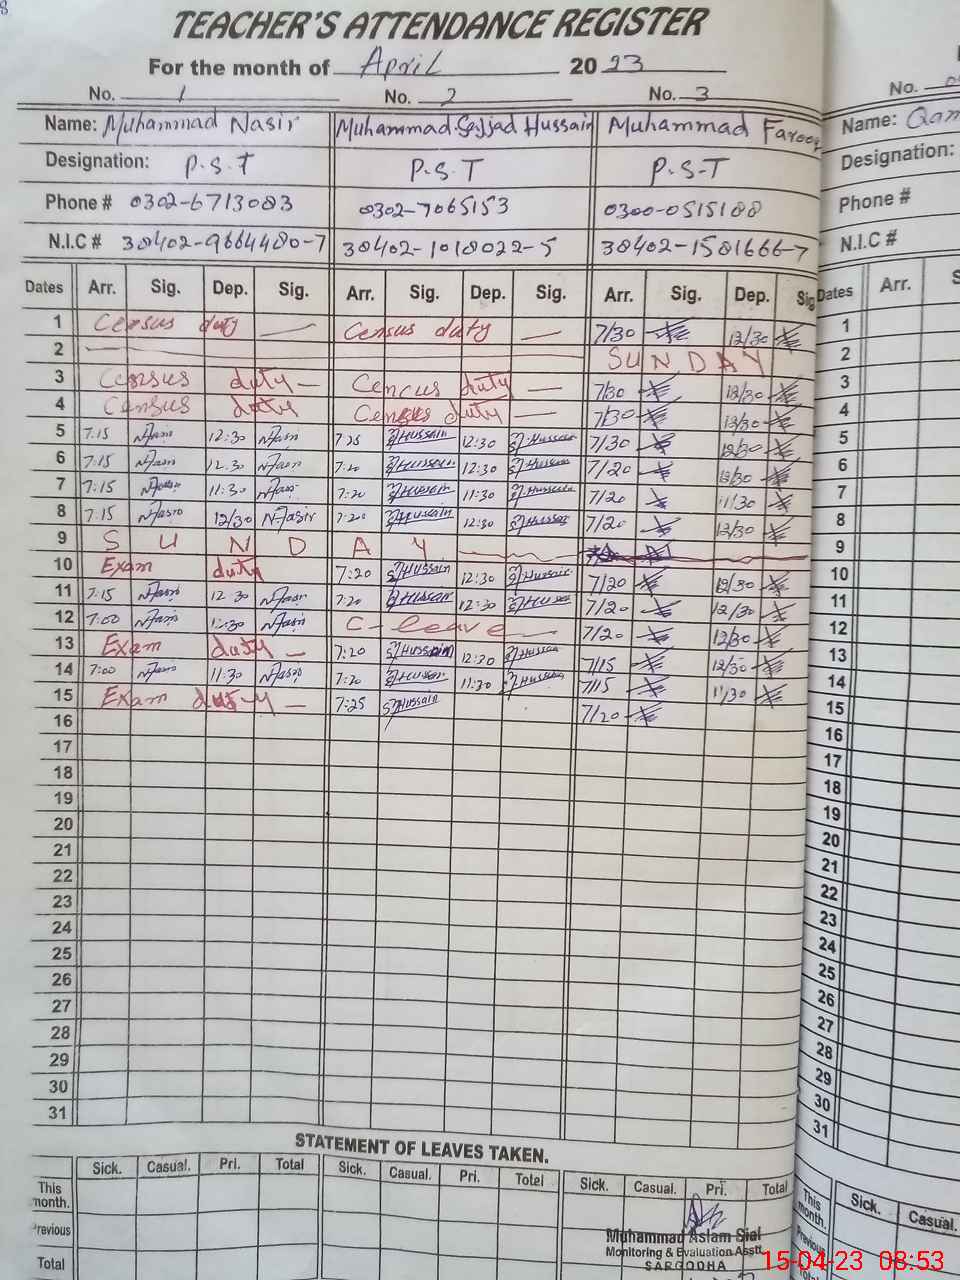 TEACHER'S ATTENDANCE REGISTER
For the month of April 2023
No. 1 No. 2 No. 3 No.
Name: Muhammad Nasir Muhammad Sajjad Hussain Muhammad Farooq Name: Qam
Designation: P.S.T P.S.T P.S.T Designation:
Phone # 0302-6713083 0302-7065153 0300-0515188 Phone #
N.I.C # 38402-9664480-7 38402-1018022-5 38402-1581666-7 N.I.C #
Dates Arr. Sig. Dep. Sig. Arr. Sig. Dep. Sig. Arr. Sig. Dep. Sig Dates Arr. S
1 Census duty — Census duty — 7/30 12/30 1
2 SUNDAY 2
3 Census duty — Cencus duty — 7/30 12/30 3
4 Census duty Census duty — 7/30 12/30 4
5 7:15 N.Nasir 12:30 N.Nasir 7 25 S.Hussain 12:30 S.Hussain 7/30 12/30 5
6 7:15 N.Nasir 12.30 N.Nasir 7:20 S.Hussain 12:30 S.Hussain 7/20 12/30 6
7 7:15 N.Nasir 11:30 N.Nasir 7:20 S.Hussain 11:30 S.Hussain 7/20 11/30 7
8 7:15 N.Nasir 12/30 N.Nasir 7:20 S.Hussain 12:30 S.Hussain 7/20 12/30 8
9 S U N D A Y 9
10 Exam duty 7:20 S.Hussain 12:30 S.Hussain 7/20 12/30 10
11 7:15 N.Nasir 12 30 N.Nasir 7:20 S.Hussain 12:30 S.Hussain 7/20 12/30 11
12 7:00 N.Nasir 12:30 N.Nasir C-leave — 7/20 12/30 12
13 Exam duty — 7:20 S.Hussain 12:30 S.Hussain 7/15 12/30 13
14 7:00 N.Nasir 11:30 N.Nasir 7:20 S.Hussain 11:30 S.Hussain 7/15 11/30 14
15 Exam duty — 7:25 S.Hussain 7/20 15
16 16
17 17
18 18
19 19
20 20
21 21
22 22
23 23
24 24
25 25
26 26
27 27
28 28
29 29
30 30
31 31
STATEMENT OF LEAVES TAKEN.
Sick. Casual. Pri. Total Sick. Casual. Pri. Total Sick. Casual. Pri. Total Sick. Casual.
This month. This month.
Previous Previous
Total Total
Muhammad Aslam Sial
Monitoring & Evaluation Asstt.
SARGODHA
15-04-23 08:53